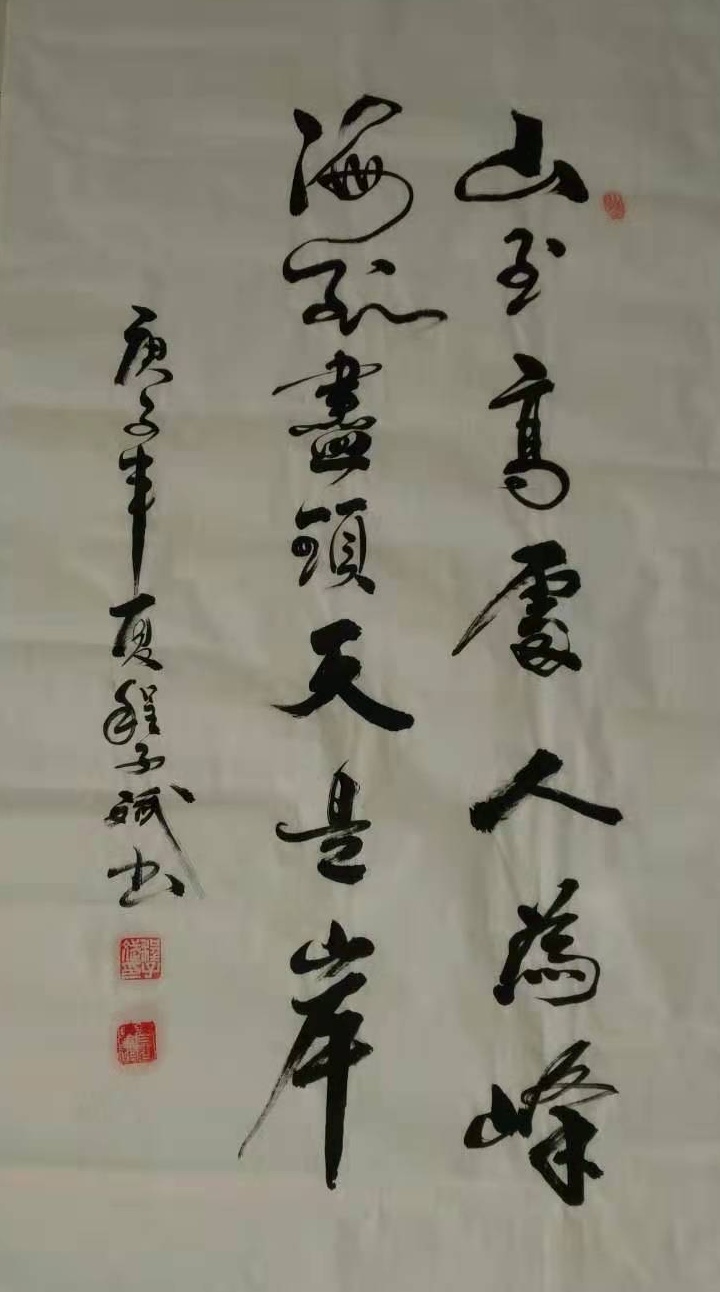 山至高處人爲峰
海到盡頭天是岸
庚子年夏程子斌书